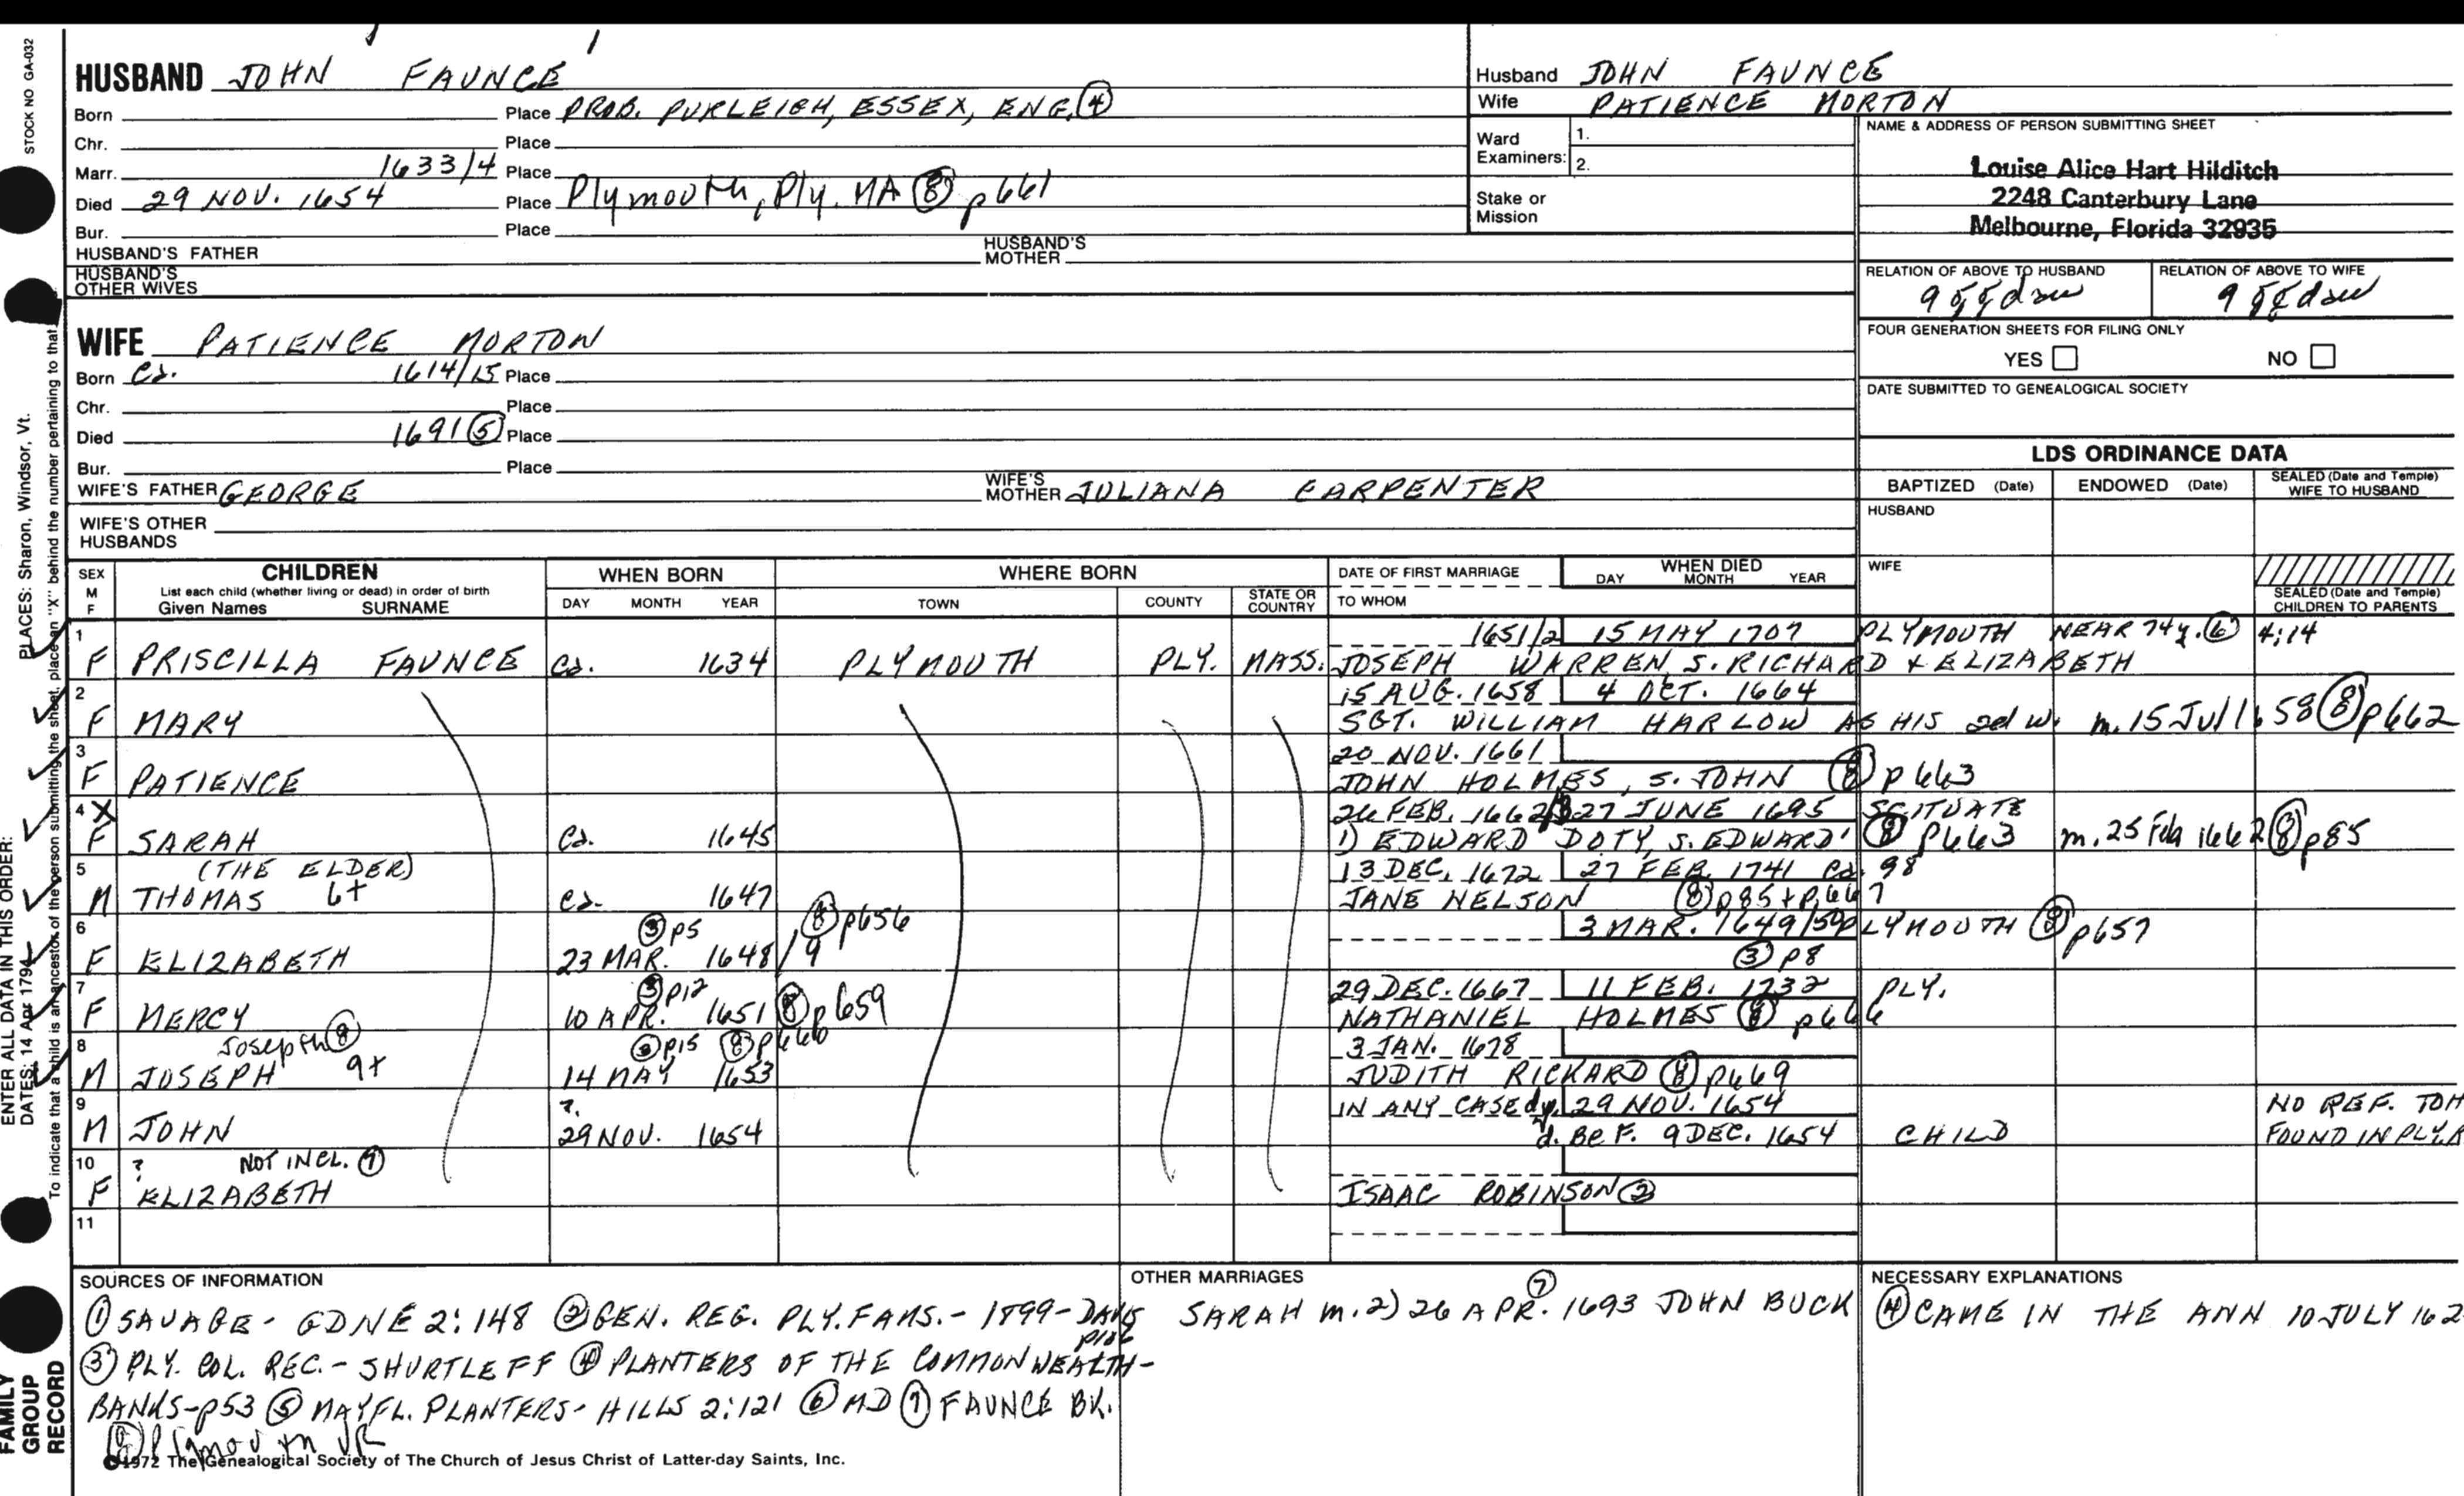 STOCK NO GA-032
HUSBAND JOHN FAUNCE
Born Place PROB. PURLEIGH, ESSEX, ENG. (4)
Chr. Place
Marr. 1633/4 Place
Died 29 NOV. 1654 Place Plymouth, Ply. MA (8) p661
Bur. Place
HUSBAND'S FATHER HUSBAND'S MOTHER
HUSBAND'S OTHER WIVES
Husband JOHN FAUNCE
Wife PATIENCE MORTON
Ward Examiners: 1.
2.
Stake or Mission
NAME & ADDRESS OF PERSON SUBMITTING SHEET
Louise Alice Hart Hilditch
2248 Canterbury Lane
Melbourne, Florida 32935
RELATION OF ABOVE TO HUSBAND RELATION OF ABOVE TO WIFE
FOUR GENERATION SHEETS FOR FILING ONLY
YES NO
DATE SUBMITTED TO GENEALOGICAL SOCIETY
WIFE PATIENCE MORTON
Born Ca. 1614/15 Place
Chr. Place
Died 1691 (5) Place
Bur. Place
WIFE'S FATHER GEORGE WIFE'S MOTHER JULIANA CARPENTER
WIFE'S OTHER HUSBANDS
LDS ORDINANCE DATA
BAPTIZED (Date) ENDOWED (Date) SEALED (Date and Temple) WIFE TO HUSBAND
HUSBAND
WIFE
SEALED (Date and Temple) CHILDREN TO PARENTS
SEX M F
CHILDREN
List each child (whether living or dead) in order of birth
Given Names SURNAME
WHEN BORN
DAY MONTH YEAR
WHERE BORN
TOWN COUNTY STATE OR COUNTRY
DATE OF FIRST MARRIAGE
TO WHOM
WHEN DIED
DAY MONTH YEAR
1 1651/2 15 MAY 1707 PLYMOUTH NEAR 74y. (6) 4:14
F PRISCILLA FAUNCE Ca. 1634 PLYMOUTH PLY. MASS. JOSEPH WARREN S. RICHARD + ELIZABETH
2 15 AUG. 1658 4 OCT. 1664
F MARY SGT. WILLIAM HARLOW AS HIS 2d w. m. 15 Jul 1658 (8) p662
3 20 NOV. 1661
F PATIENCE JOHN HOLMES, S. JOHN (8) p663
4 X 26 FEB. 1662/3 27 JUNE 1695 SCITUATE
F SARAH Ca. 1645 1) EDWARD DOTY, S. EDWARD (8) p663 m. 25 Feb 1662 (8) p85
5 (THE ELDER) 13 DEC. 1672 27 FEB. 1741 Ca. 98
M THOMAS 6+ Ca. 1647 JANE NELSON (8) p85+p.667
6 (3) p5 (8) p656 3 MAR. 1649/50 PLYMOUTH (8) p657
F ELIZABETH 23 MAR. 1648/9 (3) p8
7 (3) p12 29 DEC. 1667 11 FEB. 1732 PLY.
F MERCY 10 APR. 1651 (8) p659 NATHANIEL HOLMES (8) p666
8 Joseph (8) (3) p15 (8) p660 3 JAN. 1678
M JOSEPH 9+ 14 MAY 1653 JUDITH RICKARD (8) p669
9 ?. IN ANY CASE dy. 29 NOV. 1654 NO REF. TO
M JOHN 29 NOV. 1654 d. BeF. 9 DEC. 1654 CHILD FOUND IN PLY.
10 ? NOT INCL. (7)
F ELIZABETH ISAAC ROBINSON (2)
11
SOURCES OF INFORMATION
(1) SAVAGE - GDNE 2:148 (2) GEN. REG. PLY. FAMS. - 1899 - DAVIS p106
(3) PLY. COL. REC. - SHURTLEFF (4) PLANTERS OF THE COMMONWEALTH -
BANKS - p53 (5) MAYFL. PLANTERS - HILLS 2:121 (6) MD (7) FAUNCE BK.
(8) Plymouth VR
OTHER MARRIAGES
(7)
SARAH m. 2) 26 APR. 1693 JOHN BUCK
NECESSARY EXPLANATIONS
(4) CAME IN THE ANN 10 JULY 162
©1972 The Genealogical Society of The Church of Jesus Christ of Latter-day Saints, Inc.
ENTER ALL DATA IN THIS ORDER:
DATES: 14 Apr 1794 PLACES: Sharon, Windsor, Vt.
To indicate that a child is an ancestor of the person submitting the sheet, place an "X" behind the number pertaining to that
FAMILY GROUP RECORD